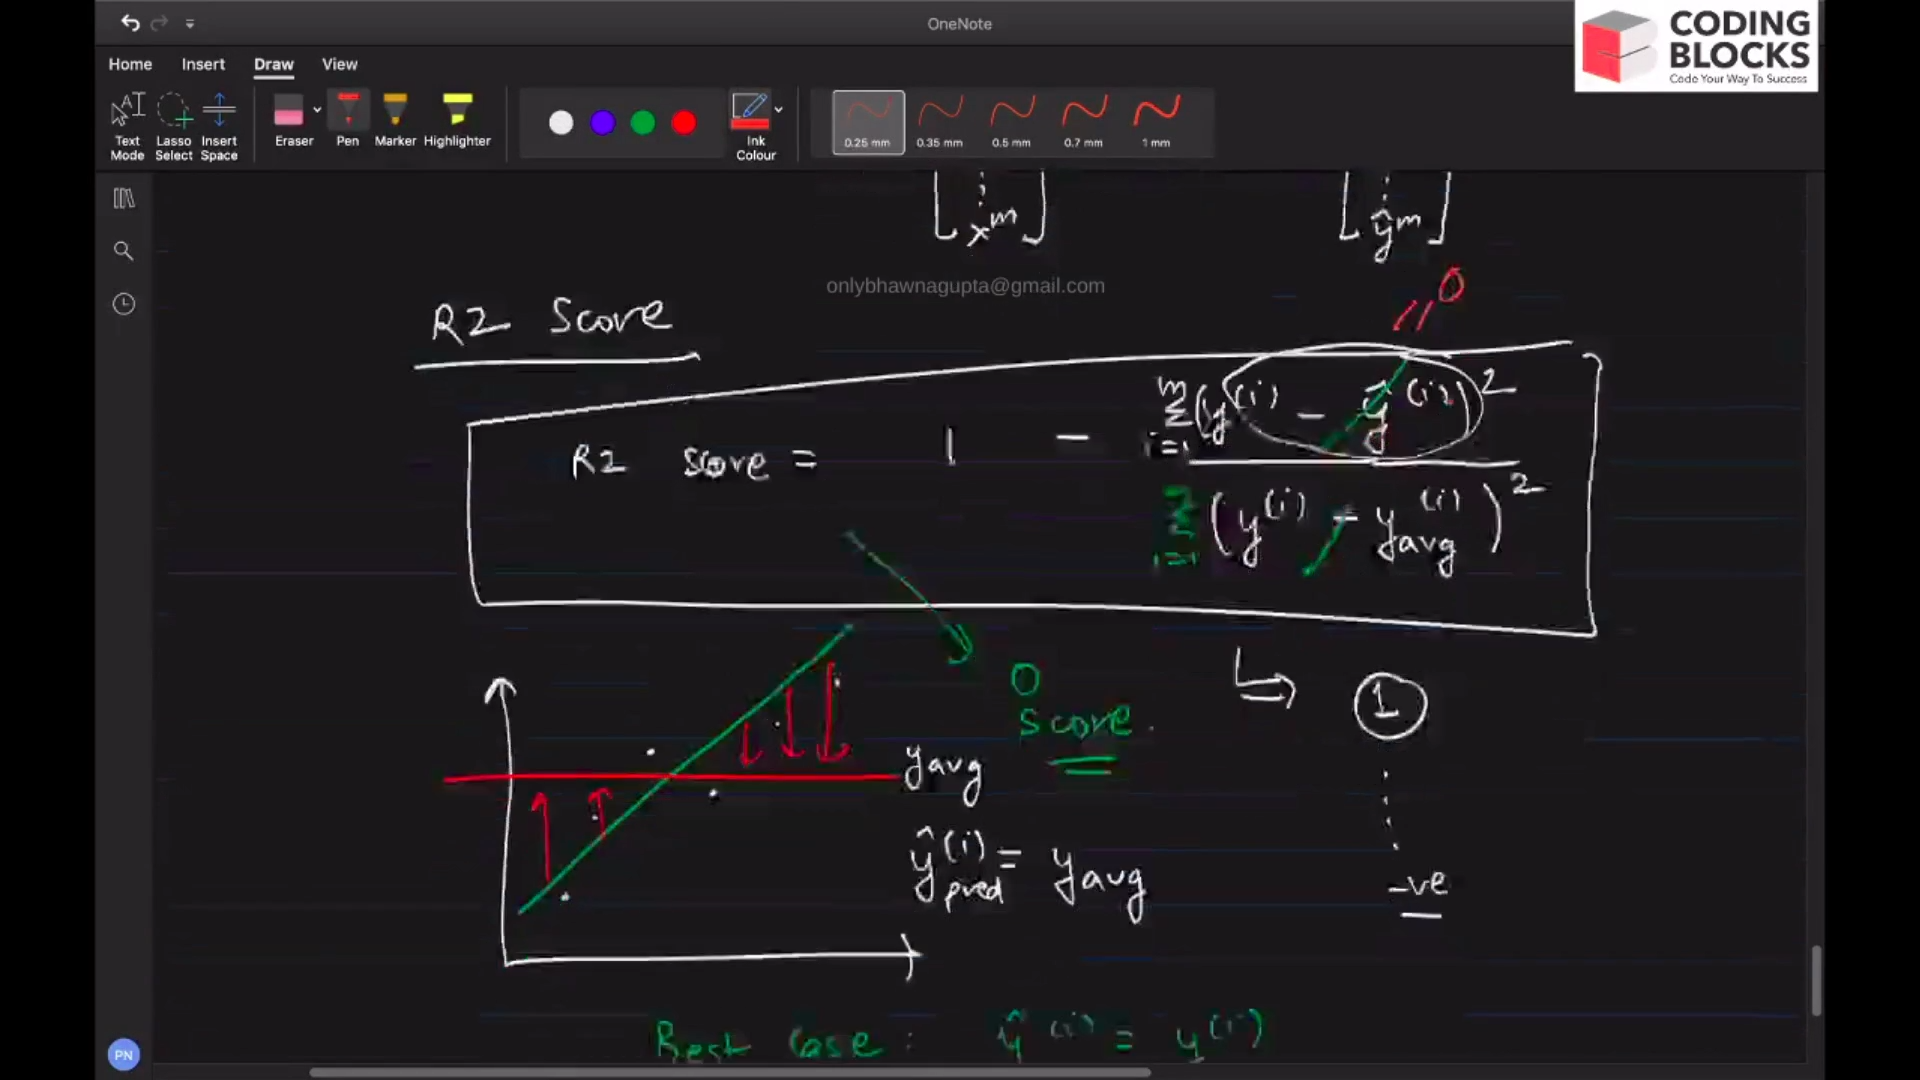 OneNote
CODING
BLOCKS
Code Your Way To Success
Home Insert Draw View
Text Mode
Lasso Select
Insert Space
Eraser
Pen
Marker
Highlighter
Ink Colour
0.25 mm
0.35 mm
0.5 mm
0.7 mm
1 mm
x^m
ŷ^m
onlybhawnagupta@gmail.com
0
R2 Score
R2 score = 1 - Σ_{i=1}^{m} (y^(i) - ŷ^(i))^2
Σ_{i=1} (y^(i) - y_avg^(i))^2
0
Score.
1
y_avg
ŷ_pred^(i) = y_avg
-ve
Best Case : ŷ^(i) = y^(i)
PN